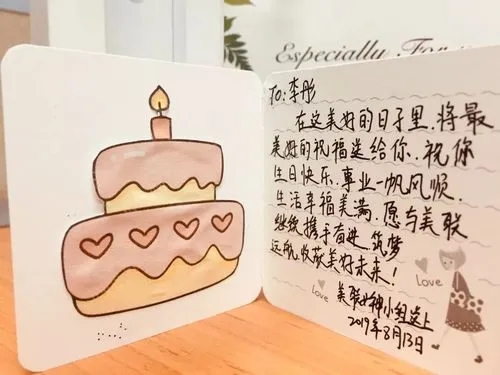 Especially For
TO:李彤
在这美好的日子里.将最
美好的祝福送给你.祝你
生日快乐.事业一帆风顺.
生活幸福美满.愿与美联
继续携手奋进.筑梦
远航.收获美好未来!
Love
Love
美联女神小组送上
2019年8月13日